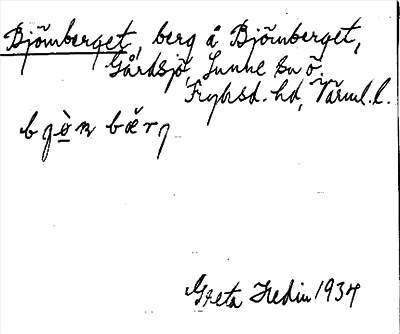 Björnberget, berg å Björnberget,
Gårdsjö, Sunne sn ö.
Fryksd. hd, Värml. l.
bjö̀n bærj
Greta Hedin 1934